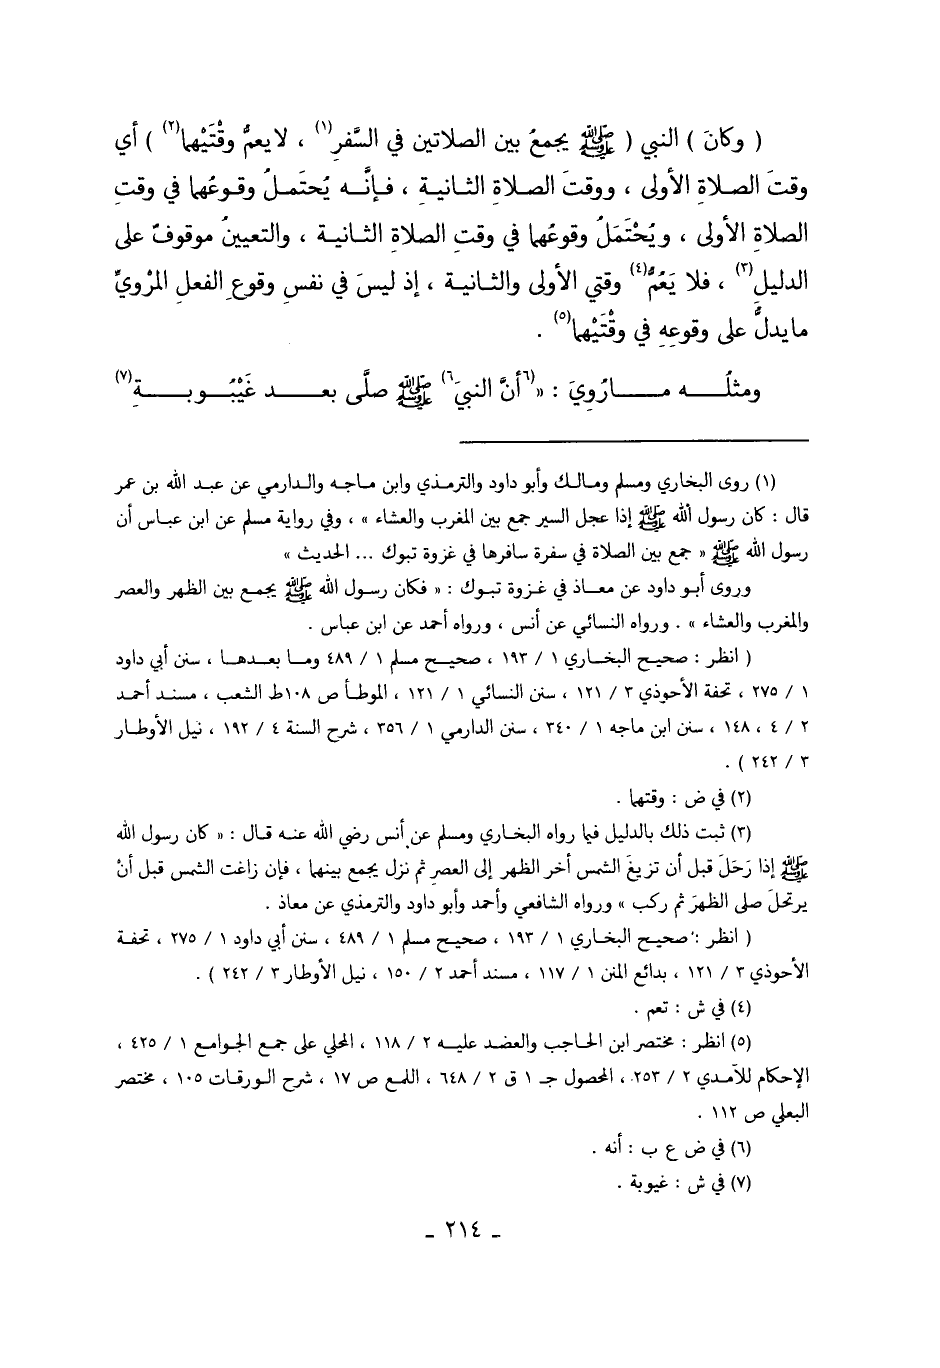 ( وكانَ ) النبي ( ﷺ يجمعُ بين الصلاتين في السَّفرِ(١) ، لايعمُّ وقْتَيْهما(٢) ) أي
وقتَ الصلاةِ الأولى ، ووقتَ الصلاةِ الثانيةِ ، فإنَّه يُحتَملُ وقوعُهما في وقتِ
الصلاةِ الأولى ، ويُحْتَمَلُ وقوعُهما في وقتِ الصلاةِ الثانية ، والتعيينُ موقوفٌ على
الدليلِ(٣) ، فلا يَعُمُّ(٤) وقتي الأولى والثانية ، إذ ليسَ في نفسِ وقوعِ الفعلِ المرْويِّ
مايدلُّ على وقوعِهِ في وقْتَيْهما(٥) .
ومثلُه مارُوِيَ : «(٦)أنَّ النبيَ(٦) ﷺ صلَّى بعد غَيْبُوبةِ(٧)
(١) روى البخاري ومسلم ومالك وأبو داود والترمذي وابن ماجه والدارمي عن عبد الله بن عمر
قال : كان رسول الله ﷺ إذا عجل السير جمع بين المغرب والعشاء » ، وفي رواية مسلم عن ابن عباس أن
رسول الله ﷺ « جمع بين الصلاة في سفرة سافرها في غزوة تبوك ... الحديث »
وروى أبو داود عن معاذ في غزوة تبوك : « فكان رسول الله ﷺ يجمع بين الظهر والعصر
والمغرب والعشاء » . ورواه النسائي عن أنس ، ورواه أحمد عن ابن عباس .
( انظر : صحيح البخاري ١ / ١٩٣ ، صحيح مسلم ١ / ٤٨٩ وما بعدها ، سنن أبي داود
١ / ٢٧٥ ، تحفة الأحوذي ٣ / ١٢١ ، سنن النسائي ١ / ١٢١ ، الموطأ ص ١٠٨ط الشعب ، مسند أحمد
٢ / ٤ ، ١٤٨ ، سنن ابن ماجه ١ / ٣٤٠ ، سنن الدارمي ١ / ٣٥٦ ، شرح السنة ٤ / ١٩٢ ، نيل الأوطار
٣ / ٢٤٢ ) .
(٢) في ض : وقتها .
(٣) ثبت ذلك بالدليل فيما رواه البخاري ومسلم عن أنس رضي الله عنه قال : « كان رسول الله
ﷺ إذا رَحَلَ قبل أن تزيغَ الشمس أخر الظهر إلى العصر ثم نزل يجمع بينهما ، فإن زاغت الشمس قبل أنْ
يرتحلَ صلى الظهرَ ثم ركب » ورواه الشافعي وأحمد وأبو داود والترمذي عن معاذ .
( انظر : صحيح البخاري ١ / ١٩٣ ، صحيح مسلم ١ / ٤٨٩ ، سنن أبي داود ١ / ٢٧٥ ، تحفة
الأحوذي ٣ / ١٢١ ، بدائع المنن ١ / ١١٧ ، مسند أحمد ٢ / ١٥٠ ، نيل الأوطار ٣ / ٢٤٢ ) .
(٤) في ش : تعم .
(٥) انظر : مختصر ابن الحاجب والعضد عليه ٢ / ١١٨ ، المحلي على جمع الجوامع ١ / ٤٢٥ ،
الإحكام للآمدي ٢ / ٢٥٣ ، المحصول جـ ١ ق ٢ / ٦٤٨ ، اللمع ص ١٧ ، شرح الورقات ١٠٥ ، مختصر
البعلي ص ١١٢ .
(٦) في ض ع ب : أنه .
(٧) في ش : غيوبة .
ـ ٢١٤ ـ